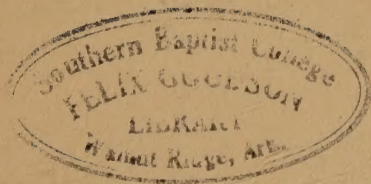 Southern Baptist College
FELIX GOODSON
LIBRARY
Walnut Ridge, Ark.